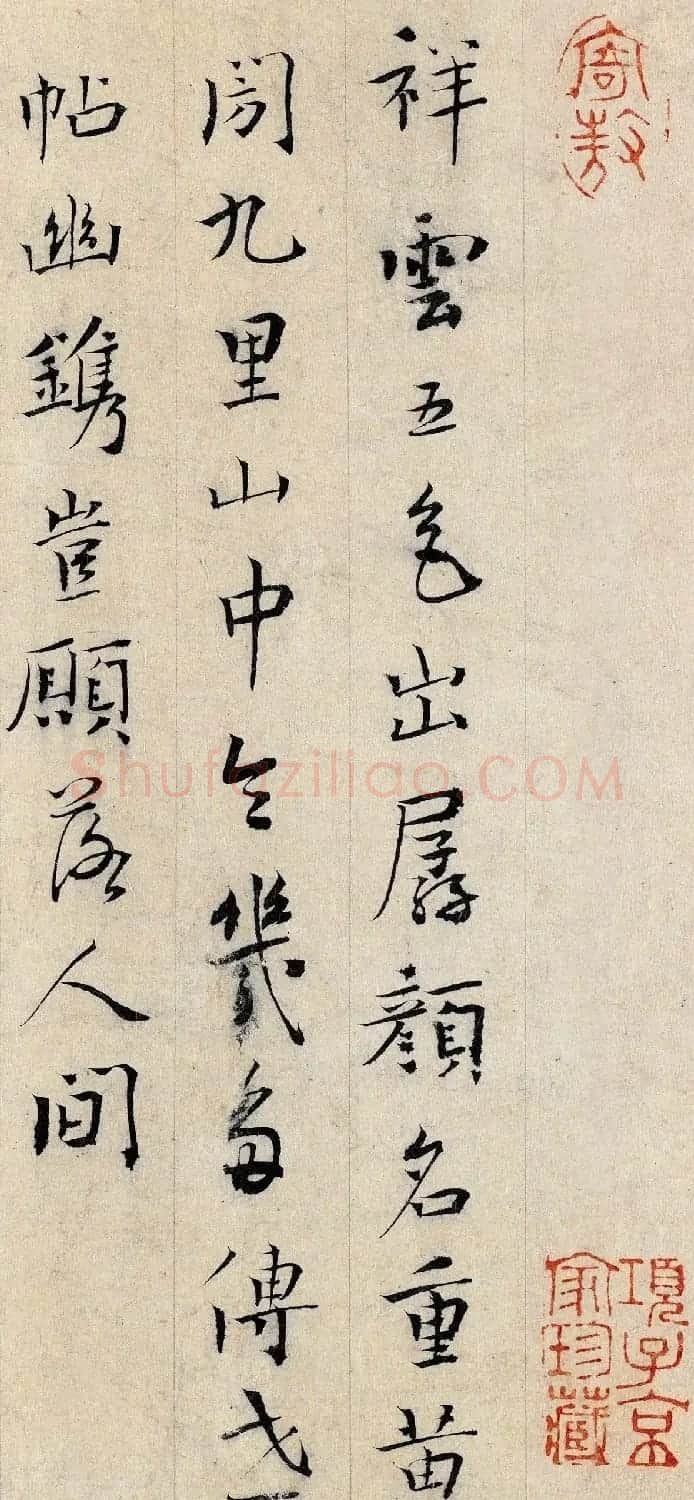 寄敖
項子京
家珍藏
祥雲五色出孱顏名重
九里山中今幾多傳
帖幽鐫豈願落人間
Shufaziliao.COM